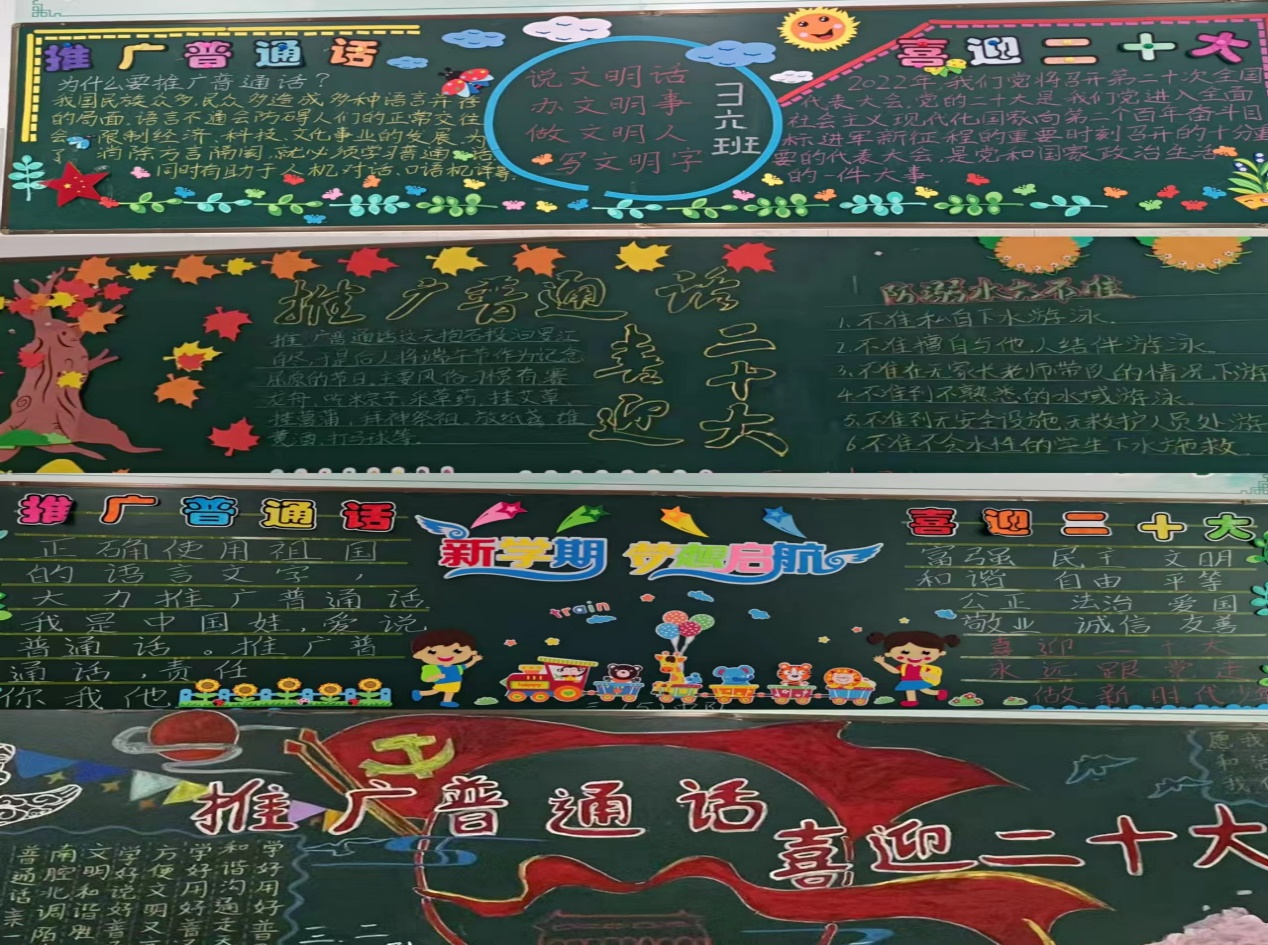 推广普通话
为什么要推广普通话？
我国民族众多,民众多造成多种语言并存
的局面,语言不通会防碍人们的正常交往
会 限制经济、科技、文化事业的发展,为
了 消除方言隔阂,就必须学习普通话
同时有助于人机对话、口语机译等.
说文明话
办文明事
做文明人
写文明字
三六班
喜迎二十大
2022年,我们党将召开第二十次全国
代表大会,党的二十大是我们党进入全面
社会主义现代化国家向第二个百年奋斗目
标进军新征程的重要时刻召开的十分重
要的代表大会,是党和国家政治生活
的一件大事.
推广普通话
喜迎
二十大
推广普通话这天抱石投汨罗江
自终,于是后人将端午节作为纪念
屈原的节日,主要风俗习惯有赛
龙舟、吃粽子、采草药、挂艾草、
挂菖蒲、拜神祭祖、放纸鸢、雄
黄酒、打马球等.
防溺水六不准
1.不准私自下水游泳.
2.不准擅自与他人结伴游泳
3.不准在无家长老师带队的情况下游
4.不准到不熟悉的水域游泳.
5.不准到无安全设施,无救护人员处游
6.不准不会水性的学生下水施救.
推广普通话
正确使用祖国
的语言文字，
大力推广普通话
我是中国娃,爱说
普通话。推广普
通话 责任
你我他
新学期 梦想启航
train
喜迎二十大
富强 民主 文明
和谐 自由 平等
公正 法治 爱国
敬业 诚信 友善
喜迎二十大
永远跟党走
做新时代少
推广普通话
喜迎二十大
学好用好普
和谐沟通走
学好用好普
方便文明又
学好说好普
文明和谐胜
南腔北调陌
普通话亲一
三、二
愿我